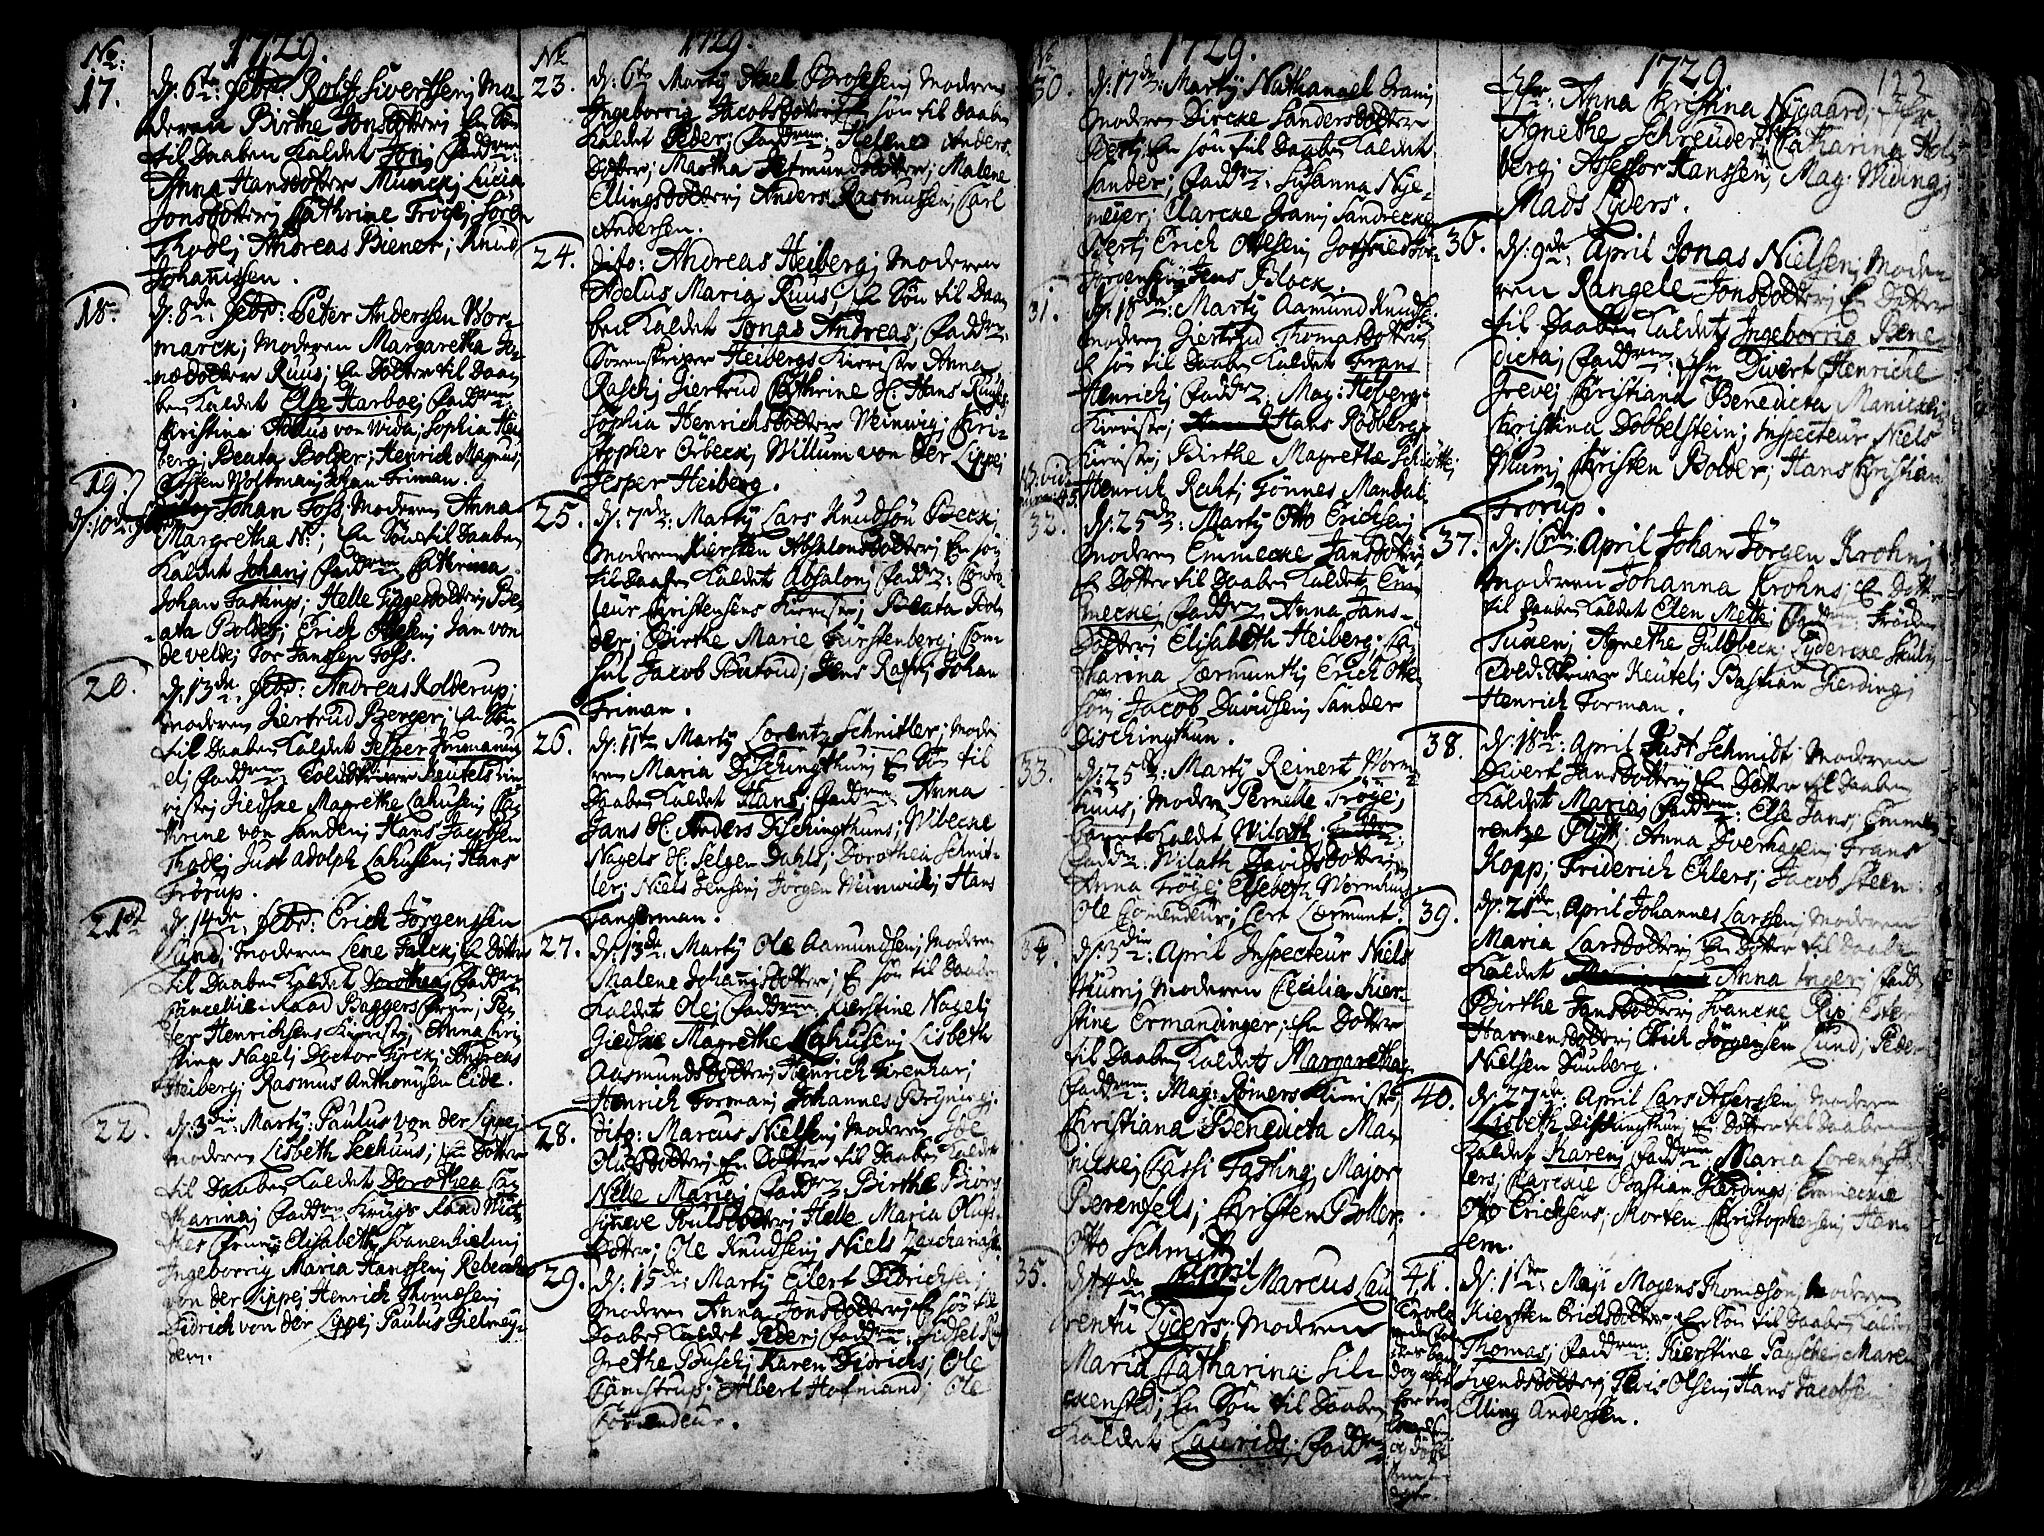 No: 1729.
17. d: 6te Febr: Rolf Sivertsen; Mo-
deren Birthe Jonsdotter; En Søn
til Daaben kaldet Jon; Fadd:
Anna Hansdotter Munck; Lucia
Jonsdotter; Cathrine Frøge; Søren
Thode; Andreas Biener; Knud
Johannssen.
18. d: 8de Febr: Peter Anderssen Wor-
marck; Moderen Margaretha Jo-
nædotter Ruus; En Dotter til Daa-
ben kaldet Else Harboe; Fadd:
Christina Adelus von Wida; Sophia Hei-
berg; Beata Bolder; Henrich Magnus;
Carsten Woltman; Johan Friman.
19. d: 10de Febr: Johan Foss; Moderen Anna
Margretha N:; En Søn til Daaben
kaldet Johan; Fadd: Catrina
Johan Fastings; Helle Figgesdotter; Be-
ata Bolder; Erich Ottesen; Jan von
de velde; Tor Janssen Foss.
20. d: 13de Febr: Andreas Kolderup;
Moderen Giertrud Berger; En Søn
til Daaben kaldet Jesper
Fadd: Toldskriver Keutels Kier-
riste; Giedske Magrethe Lahusen; Ca-
thrine von Sanden; Hans Jacobsen
Thode; Just Adolph Lahusen; Hans
Frörup.
21. d: 14de Febr: Erich Jørgensøn
Lund; Moderen Lene Falck; En Dotter
til Daaben kaldet Dorothea; Fadd:
Cancellie-Raad Baggers Frue; Pe-
ter Henrichsens Kierriste; Anna Chri-
stina Nagel; Doctor Tyrck; Andreas
Heiberg; Rasmus Anthonisen Eide.
22. d: 3die Marty: Paulus von der Lippe;
Moderen Lisbeth Seehuus; En Dotter
til Daaben kaldet Dorothea Ca-
tharina; Fadd: Krigs Raad
Frue; Elisabeth Svanenhielm;
Ingeborrig Maria Hanssen; Rebecha
von der Lippe; Henrich Thomesen;
Didrich von der Lippe; Paulus Gielmey-
den.
No 1729.
23. d: 6te Marty Axel Brossen; Moderen
Ingeborrig Jacobsdotter; En søn til Daaben
kaldet Peder; Fadd: Helena Anders-
dotter; Martha Jetmundsdotter; Malene
Ellingsdotter; Anders Rasmussen; Carl
Andersen.
24. dito: Andreas Heiberg; Moderen
Adelus Maria Ruus; En Søn til Daa-
ben kaldet Jonas Andreas; Fadd:
Sorenskriver Heibergs Kierriste; Anna
Rasch; Giertrud Cathrine Sl: Hans Ruus;
Sophia Henrichsdotter Weinwig; Chri-
stopher Örbeck; Willum von der Lippe;
Jesper Heiberg.
25. d: 7de: Marty Lars Knudsøn Beck;
Moderen Kiersten Absalonsdotter; En søn
til Daaben kaldet Absalon; Fadd:
Christensens Kierriste; Beata Bol-
der; Birthe Marie Fürstenberg; Con-
sul Jacob Butoud; Jens Rasch; Johan
Friman.
26. d: 11te Marty Lorentz Schnitler; Mode-
ren Maria Dischingthun; En Søn til
Daaben kaldet Hans; Fadd: Anna
Jans Sl: Anders Dischingthuns; Wibecke
Nagels Sl: Selgen Dahls; Dorothea Schnit-
ler; Niels Jensen; Jørgen Weinwich; Hans
Tangerman.
27. d: 13de: Marty Ole Aamundsen; Moderen
Malene Johannisdotter; En søn til Daaben
kaldet Ole; Fadd: Kierstine Nagel;
Giedske Magrethe Lahusen; Lisbeth
Aasmundsdotter; Henrich Firenhar;
Henrich Forman; Johannes Bryning.
28. dito: Marcus Nielsen; Moderen
Olufsdotter; En Dotter til Daaben kaldet
Nelle Maria; Fadd: Birthe Biørn;
Syneve Poulsdotter; Helle Maria Olufs-
dotter; Ole Knudsen; Niels Zachariasen.
29. d: 15de: Marty Eilert Didrichsen;
Moderen Anna Jonsdotter; En søn til
Daaben kaldet Peder; Fadd: Sidsel
Grethe Busch; Karen Didrichs; Ole
Camstrup; Albert Hofmand; Ole
Comendeur.
No 1729.
30. d: 17de: Marty Nathanael Gram;
Moderen Dircke Sandersdotter
Bert; En søn til Daaben kaldet
Sander; Fadd: Susanna Nye-
meyer; Clarcke Gram; Sandrecke
Bert; Erich Ottesen; Gotfried
Jørgensen; Jens Block.
31. d: 18de: Marty Aamund Knudsen;
Moderen Giertrud Thomasdotter;
En søn til Daaben kaldet Frans
Henrich; Fadd: Mag: Heibergs
Kierriste; Hans Rodbergs
Kierriste; Birthe Magretta
Henrich Racht; Tönnes Mandal.
32. d: 25de: Marty Otto Erichsen;
Moderen Emmecke Jansdotter;
En Dotter til Daaben kaldet Em-
mecke; Fadd: Anna Jans-
dotter; Elisabeth Heiberg; Ca-
tharina Cærmunt; Erich Otte-
søn; Jacob Davidsen; Sander
Dischingthun.
33. d: 25de: Marty Reinert Worm-
huus; Moderen Pernelle Frøge;
Barnet kaldet Wilath;
Fadd: Wilath Davidsdotter;
Anna Frøge; Elsebeth Wormhuus;
Ole Comendeur; Cort Cærmunt.
34. d: 3die April Inspecteur Niels
Mum; Moderen Cecilia Kier-
stine Ermandinger; En Dotter
til Daaben kaldet Margaretha
Fadd: Mag: Rømers Kierriste;
Christiana Benedicta Ma-
nicke; Cassi Fasting; Major
Berenfels; Christen Bolder;
Otto Schmidt.
35. d: 4de April Marcus Lau-
rentii Lyders; Moderen
Maria Catharina Sil-
ckensted; En Søn til Daaben
kaldet Laurids; Fadd:
1729 122
Jfr: Anna Christina Nygaard; Jfr:
Agnethe Schreuder; Catharina Hol-
berg; Assessor Hanssen; Mag: Miding;
Mads Lyders.
36. d: 9de April Jonas Nielsen; Mode-
ren Rangele Jonsdotter; En Dotter
til Daaben kaldet Ingeborrig Bene-
dicta; Fadd: Jfr Divert Henricke
Greve; Christiana Benedicta Manicke;
Christina Dobbelstein; Inspecteur Niels
Mum; Christen Bolder; Hans Christian
Frörup.
37. d: 16de April Johan Jörgen Krohn;
Moderen Johanna Krohns; En Dotter
til Daaben kaldet Elen Mette; Fadd:
Tuxen; Agnethe Guldbeck; Lydercke
Told-Skriver Keutel; Bastian Gierding;
Henrich Forman.
38. d: 18de: April Just Schmidt; Moderen
Divert Jansdotter; En Dotter til Daaben
kaldet Maria; Fadd: Else Jans; Emme-
rentze Plytt; Anna Overhagen; Frans
Kopp; Friderich Ehlers; Jacob Steen.
39. d: 21de April Johannes Larssen; Moderen
Maria Larsdotter; En Dotter til Daaben
kaldet Anna Inger; Fadd:
Birthe Jansdotter; Svancke Rip; Ester
Harmensdotter; Erich Jørgensen Lund; Peder
Nielsen Duuberg.
40. d: 27de April Lars Assersen; Moderen
Lisbeth Dischingthun; En Dotter til Daaben
kaldet Karen; Fadd: Maria Lorentz
Clarckie Bastian Gierdings; Emmeckie
Otto Ericksens; Morten Christophersen; Hans
Sem.
41. d: 1ste: Maji Mogens Thomesøn; Moderen
Kiersten Erichsdotter; En Søn til Daaben kaldet
Thomas; Fadd: Kierstine Pasche; Maren
Svendsdotter; Tevis Olsen; Hans Jacobsen;
Elling Andersen.